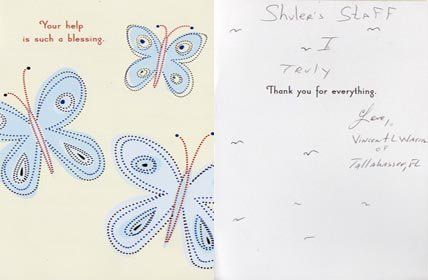 Your help
is such a blessing.
Shuler's Staff
I
Truly
Thank you for everything.
Love,
Vincent L
of
Tallahassee, FL